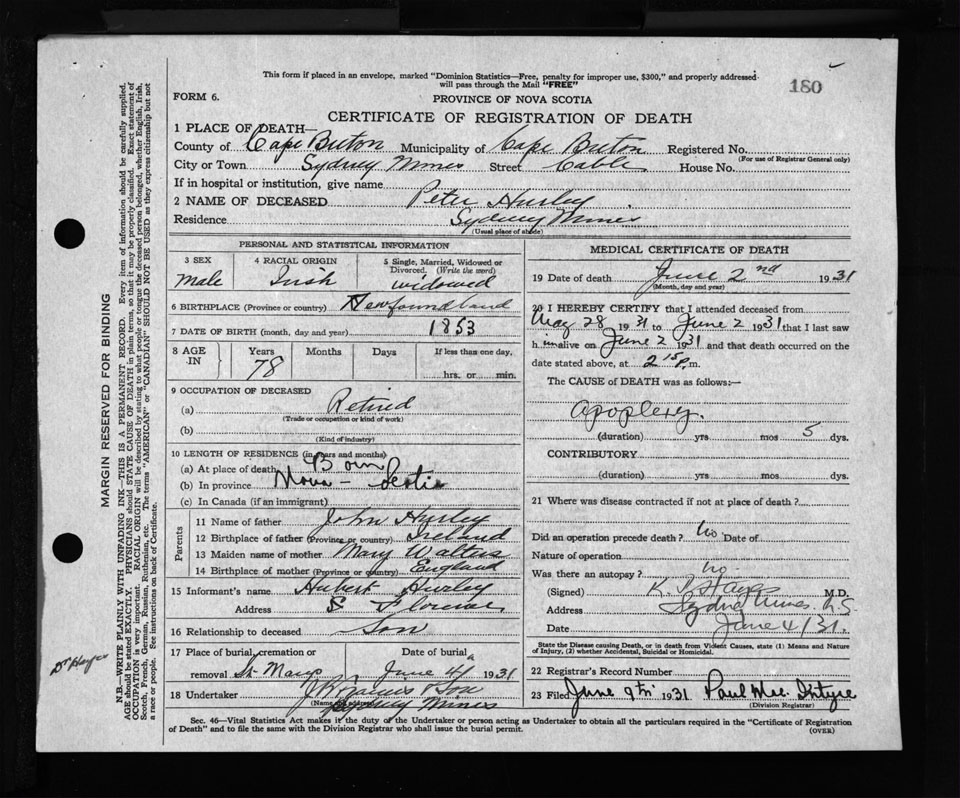 180
This form if placed in an envelope, marked "Dominion Statistics—Free, penalty for improper use, $300," and properly addressed
will pass through the Mail "FREE"
FORM 6.
PROVINCE OF NOVA SCOTIA
CERTIFICATE OF REGISTRATION OF DEATH
1 PLACE OF DEATH—
County of Cape Breton Municipality of Cape Breton Registered No.
(For use of Registrar General only)
City or Town Sydney Mines Street Cable House No.
If in hospital or institution, give name
2 NAME OF DECEASED Peter Hurley
Residence Sydney Mines
(Usual place of abode)
PERSONAL AND STATISTICAL INFORMATION
3 SEX 4 RACIAL ORIGIN 5 Single, Married, Widowed or
Divorced. (Write the word)
male Irish widowed
6 BIRTHPLACE (Province or country) Newfoundland
7 DATE OF BIRTH (month, day and year) 1853
8 AGE IN Years Months Days If less than one day,
78 hrs. or min.
9 OCCUPATION OF DECEASED
(a) Retired
(Trade or occupation or kind of work)
(b)
(Kind of industry)
10 LENGTH OF RESIDENCE (in years and months)
(a) At place of death Born
(b) In province Nova - Scotia
(c) In Canada (if an immigrant)
Parents
11 Name of father John Hurley
12 Birthplace of father (Province or country) Ireland
13 Maiden name of mother Mary Walters
14 Birthplace of mother (Province or country) England
15 Informant's name Hubert Hurley
Address Florence
16 Relationship to deceased Son
17 Place of burial, cremation or Date of burial
removal St Marys June 4 1931
18 Undertaker Son
(Name and address) Sydney Mines
MEDICAL CERTIFICATE OF DEATH
19 Date of death June 2nd 1931
(Month, day and year)
20 I HEREBY CERTIFY that I attended deceased from
May 28 1931 to June 2 1931 that I last saw
h im alive on June 2 1931 and that death occurred on the
date stated above, at 2 15 p. m.
The CAUSE of DEATH was as follows:—
apoplexy.
(duration) yrs mos 5 dys.
CONTRIBUTORY
(duration) yrs mos dys.
21 Where was disease contracted if not at place of death?
Did an operation precede death? no Date of
Nature of operation
Was there an autopsy? no.
(Signed) Hayes M.D.
Address Sydney Mines N.S.
Date June 4/31.
State the Disease causing Death, or in death from Violent Causes, state (1) Means and Nature
of Injury, (2) whether Accidental, Suicidal or Homicidal.
22 Registrar's Record Number
23 Filed June 9th 1931 Paul Mac Intyre
(Division Registrar)
Sec. 46—Vital Statistics Act makes it the duty of the Undertaker or person acting as Undertaker to obtain all the particulars required in the "Certificate of Registration
of Death" and to file the same with the Division Registrar who shall issue the burial permit.
(OVER)
MARGIN RESERVED FOR BINDING
N.B.—WRITE PLAINLY WITH UNFADING INK—THIS IS A PERMANENT RECORD. Every item of information should be carefully supplied.
AGE should be stated EXACTLY. PHYSICIANS should STATE CAUSE OF DEATH in plain terms, so that it may be properly classified. Exact statement of
OCCUPATION is very important. RACIAL ORIGIN will be described by stating to what people or tongue the deceased person belonged, whether English, Irish,
Scotch, French, German, Russian, Ruthenian, etc. The terms "AMERICAN" or "CANADIAN" SHOULD NOT BE USED as they express citizenship but not
a race or people. See instructions on back of Certificate.
Dr Hayes